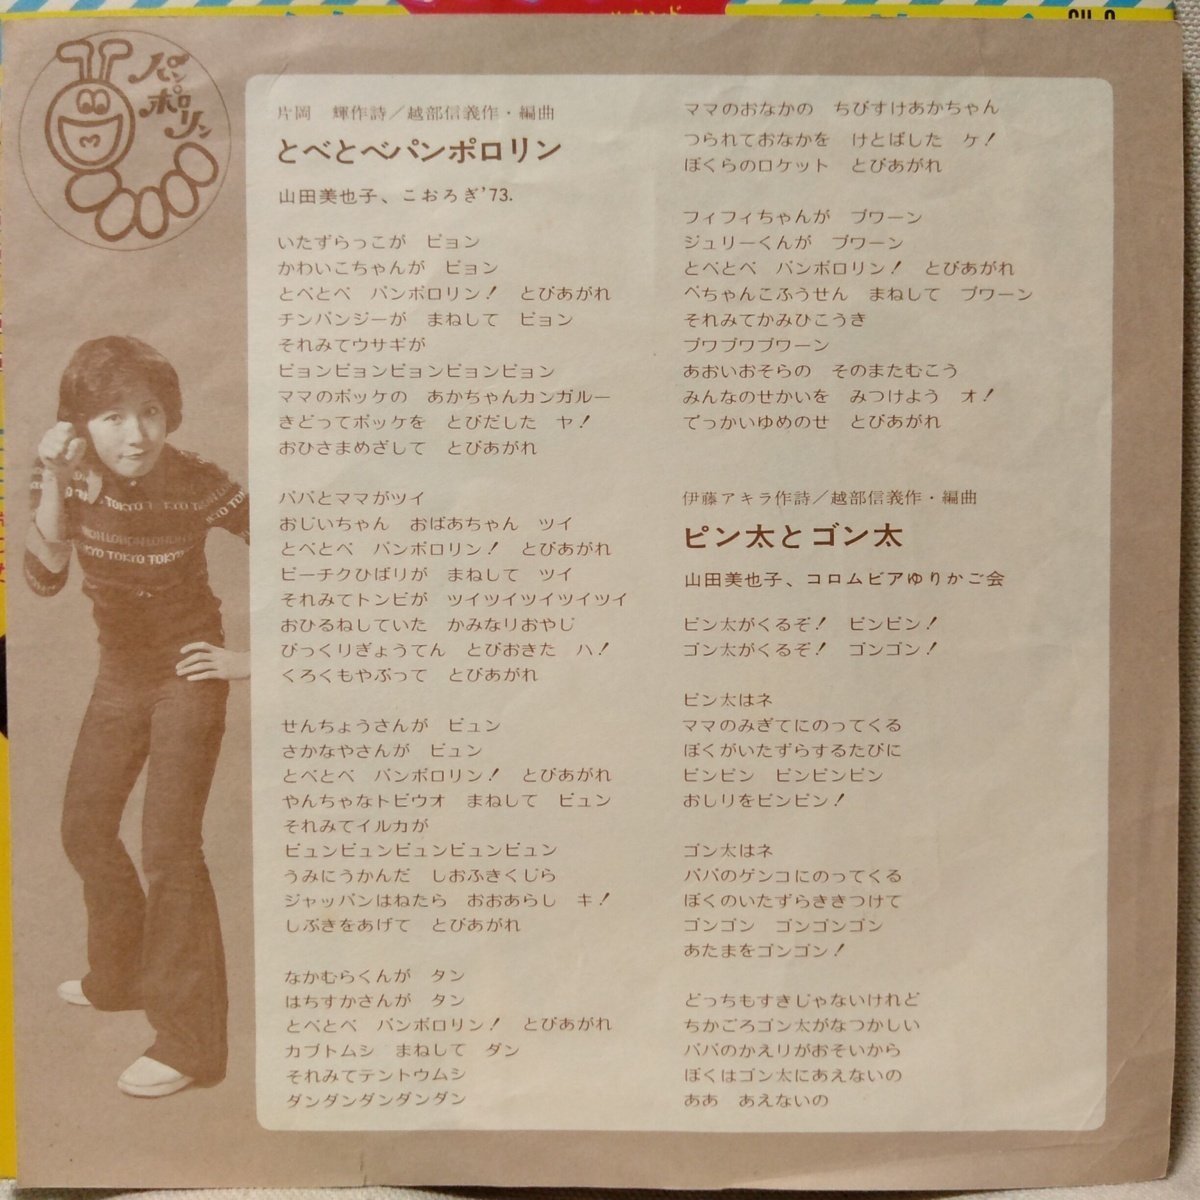 パンポロリン
片岡　輝作詩／越部信義作・編曲
とべとべパンポロリン
山田美也子、こおろぎ’73.
いたずらっこが　ピョン
かわいこちゃんが　ピョン
とべとべ　パンポロリン！　とびあがれ
チンパンジーが　まねして　ピョン
それみてウサギが
ピョンピョンピョンピョンピョン
ママのポッケの　あかちゃんカンガルー
きどってポッケを　とびだした　ヤ！
おひさまめざして　とびあがれ
パパとママがツイ
おじいちゃん　おばあちゃん　ツイ
とべとべ　パンポロリン！　とびあがれ
ピーチクひばりが　まねして　ツイ
それみてトンビが　ツイツイツイツイツイ
おひるねしていた　かみなりおやじ
びっくりぎょうてん　とびおきた　ハ！
くろくもやぶって　とびあがれ
せんちょうさんが　ピュン
さかなやさんが　ピュン
とべとべ　パンポロリン！　とびあがれ
やんちゃなトビウオ　まねして　ピュン
それみてイルカが
ピュンピュンピュンピュンピュン
うみにうかんだ　しおふきくじら
ジャッパンはねたら　おおあらし　キ！
しぶきをあげて　とびあがれ
なかむらくんが　タン
はちすかさんが　タン
とべとべ　パンポロリン！　とびあがれ
カブトムシ　まねして　ダン
それみてテントウムシ
ダンダンダンダンダン
ママのおなかの　ちびすけあかちゃん
つられておなかを　けとばした　ケ！
ぼくらのロケット　とびあがれ
フィフィちゃんが　プワーン
ジュリーくんが　プワーン
とべとべ　パンポロリン！　とびあがれ
ぺちゃんこふうせん　まねして　プワーン
それみてかみひこうき
プワプワプワーン
あおいおそらの　そのまたむこう
みんなのせかいを　みつけよう　オ！
でっかいゆめのせ　とびあがれ
伊藤アキラ作詩／越部信義作・編曲
ピン太とゴン太
山田美也子、コロムビアゆりかご会
ピン太がくるぞ！　ピンピン！
ゴン太がくるぞ！　ゴンゴン！
ピン太はネ
ママのみぎてにのってくる
ぼくがいたずらするたびに
ピンピン　ピンピンピン
おしりをピンピン！
ゴン太はネ
パパのゲンコにのってくる
ぼくのいたずらききつけて
ゴンゴン　ゴンゴンゴン
あたまをゴンゴン！
どっちもすきじゃないけれど
ちかごろゴン太がなつかしい
パパのかえりがおそいから
ぼくはゴン太にあえないの
ああ　あえないの